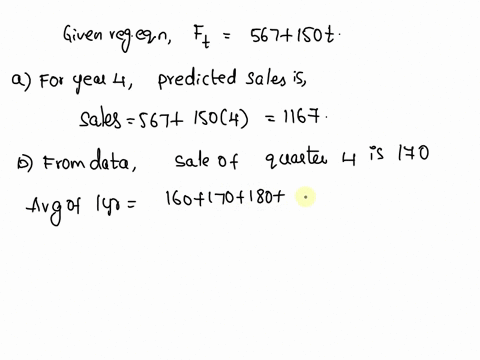 Given reg eqn, Fₜ = 567+150t.
a) For year 4, predicted sales is,
Sales = 567+ 150(4) = 1167.
b) From data, Sale of quarter 4 is 170
Avg of 1yr = 160+170+180+